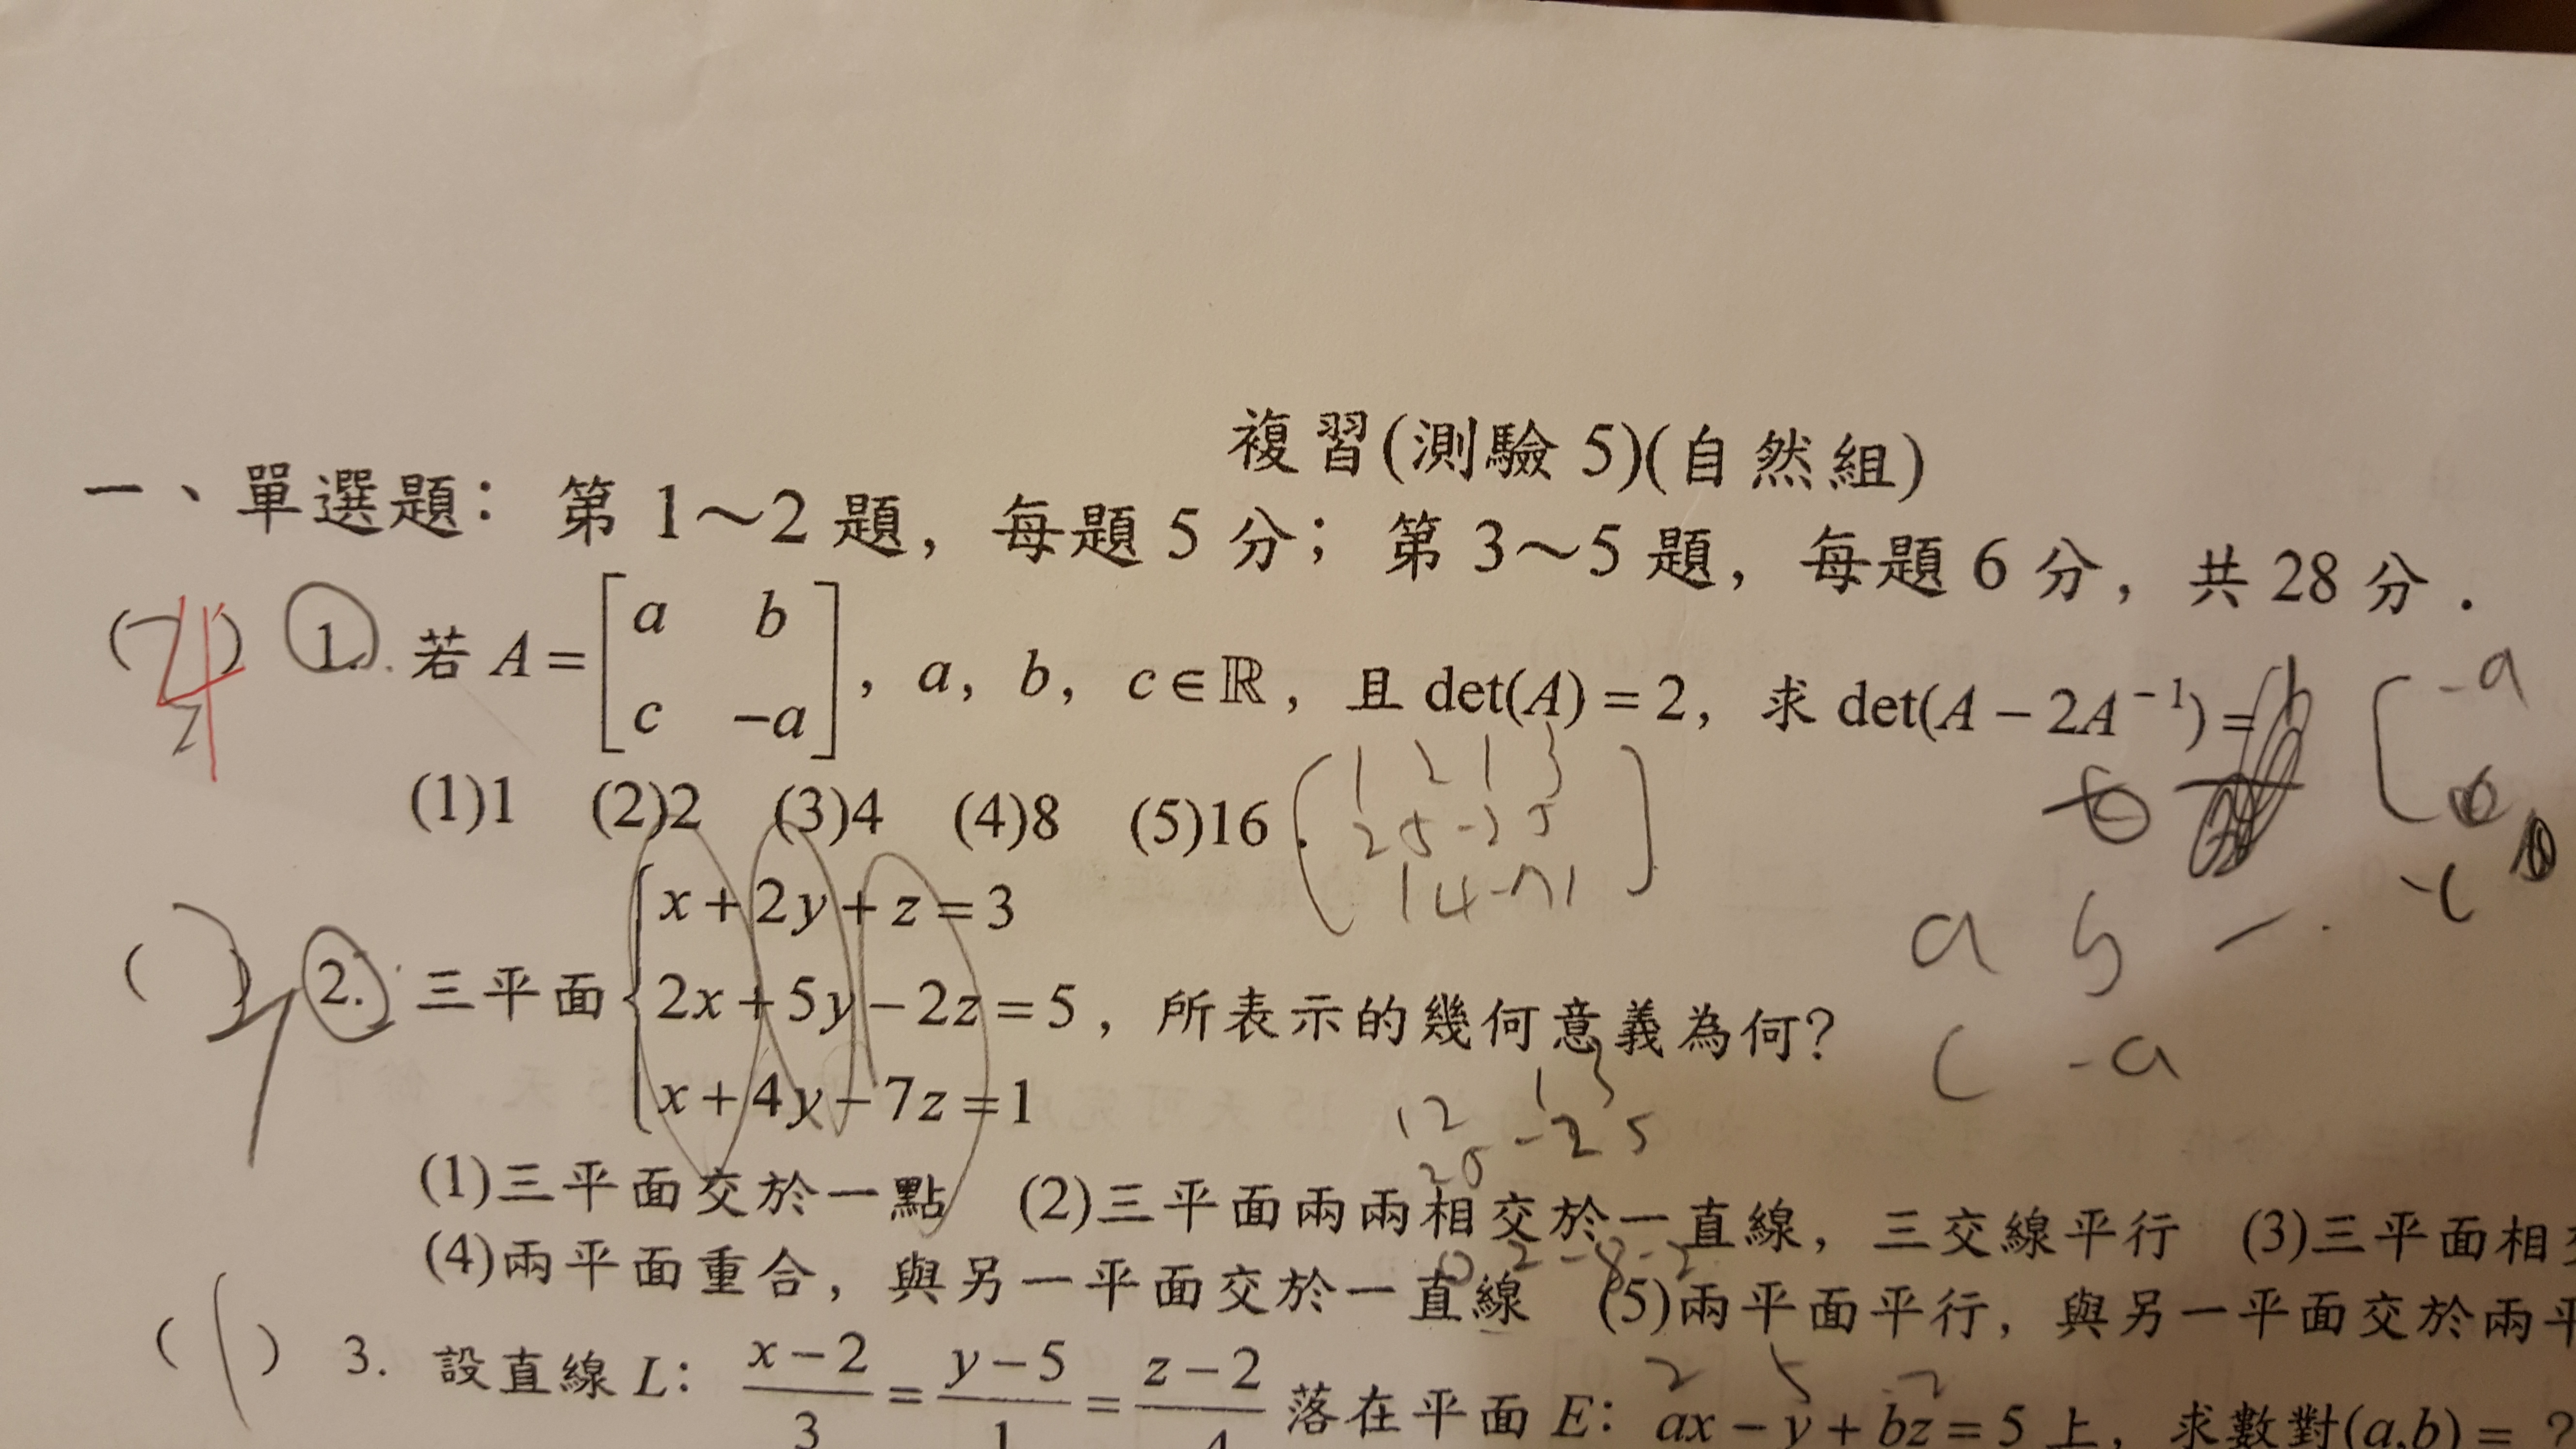 複習(測驗 5)(自然組)
一、單選題：第 1～2 題，每題 5 分；第 3～5 題，每題 6 分，共 28 分．
(4) 1. 若 A = [ a b ; c −a ]，a，b，c ∈ ℝ，且 det(A) = 2，求 det(A − 2A⁻¹) =
(1)1 (2)2 (3)4 (4)8 (5)16．
1 2 1 3
2 5 -2 5
1 4 -7 1
-a
-c
a b -
c -a
x + 2y + z = 3
( ) 2. 三平面 2x + 5y − 2z = 5，所表示的幾何意義為何？
x + 4y − 7z = 1
1 2 1 3
2 5 -2 5
(1)三平面交於一點 (2)三平面兩兩相交於一直線，三交線平行 (3)三平面相
0 2 -8 -2
(4)兩平面重合，與另一平面交於一直線 (5)兩平面平行，與另一平面交於兩平
2 5 -2
(1) 3. 設直線 L： x−2/3 = y−5/1 = z−2/4 落在平面 E：ax − y + bz = 5 上，求數對(a,b) = ?